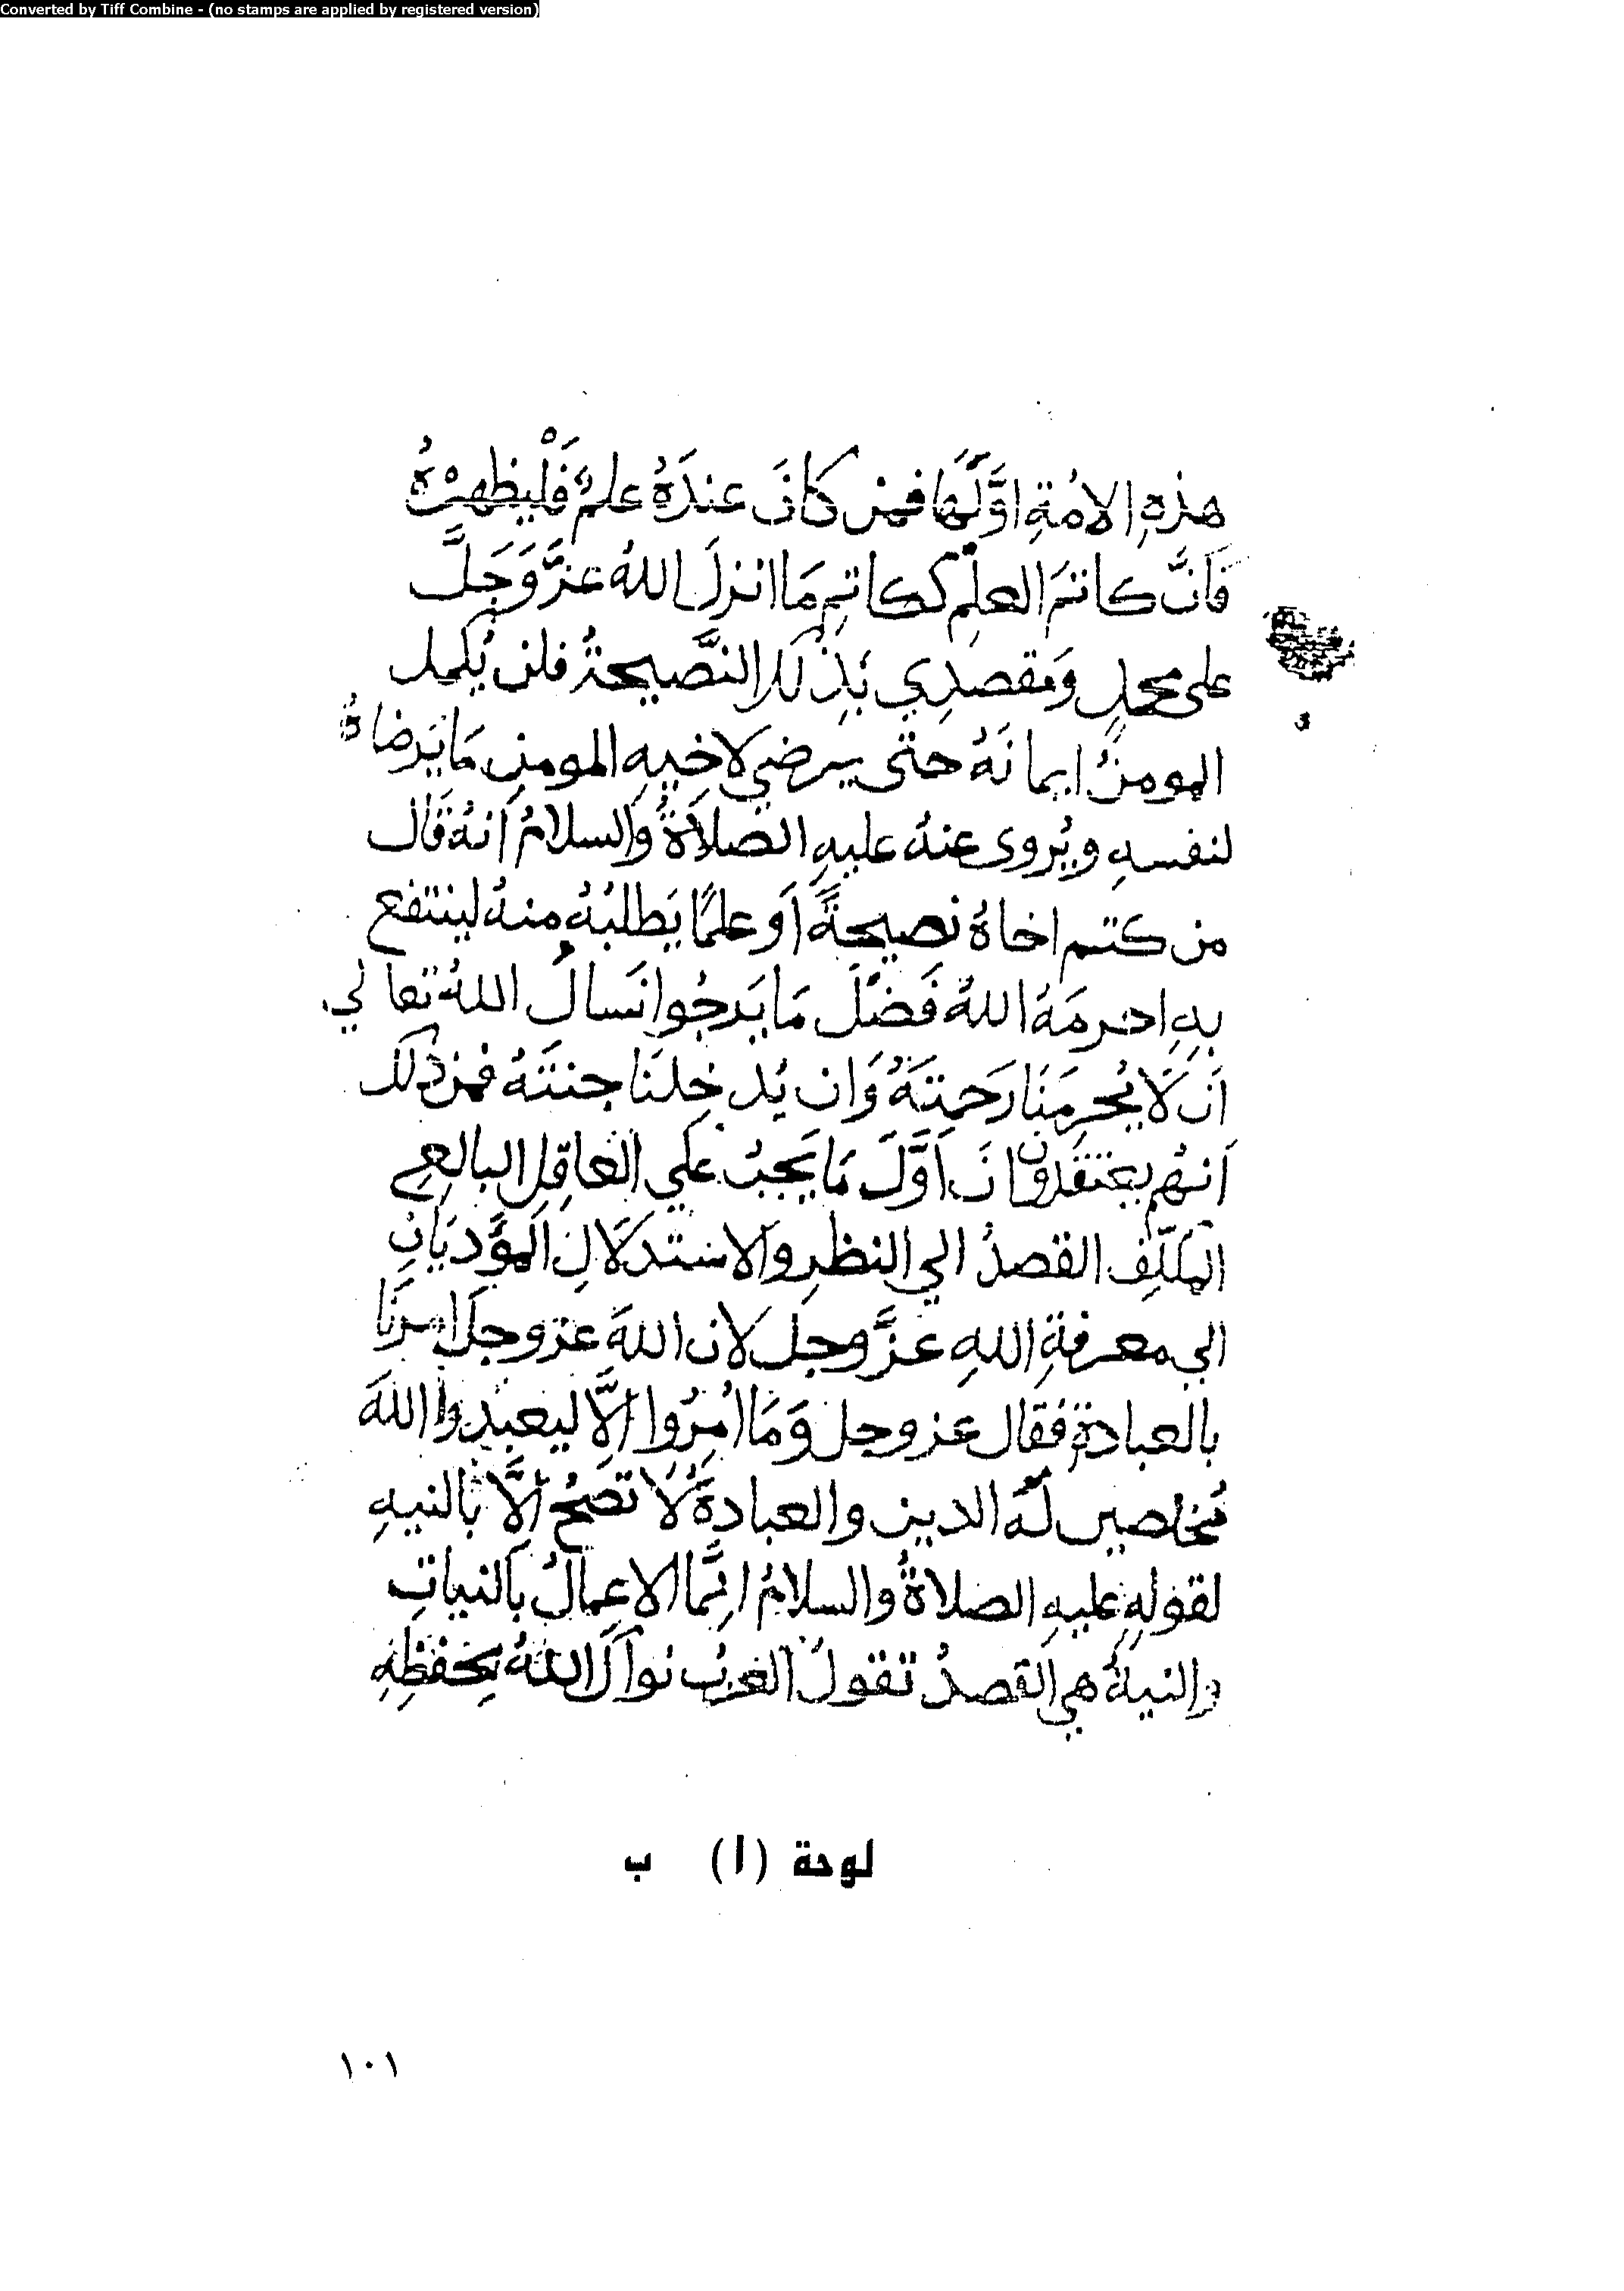 Converted by Tiff Combine - (no stamps are applied by registered version)
هذِهِ الامُةِ اوَّلَهَا فمن كانَ عندَهُ علمٌ فَلْيظهرْهُ
فَانَّ كاتمَ العلمِ ككاتِمِ مَا انزلَ اللهُ عزَّ وَجَلَّ
على محمدٍ وَمقصدِي بَذلك النَّصيحةُ فلن يُكمل
المومنُ ايمانَهُ حتى يرضي لاخِيهِ المومنِ مَا يَرضاهُ
لنفسهِ ويُروى عنهُ عليهِ الصَّلاةُ والسلامُ اَنهُ قَال
من كتم اخاهُ نصيحةً اَو علمًا يَطلبُهُ منهُ لينتفع
بهِ احرمَهُ اللهُ فَضْلَ مَا يَرجُوا نَسالُ اللهُ تعالي
اَن لَا يُحرِمَنَا رَحمتَهُ وَان يُدخِلنَا جنتَهُ فمن ذلك
اَنهُم يعتقدون اَنَ اَوَّلَ مَا يَجبُ عَلي العَاقِلِ البالِغِ
المكلَّفِ القصدُ الي النظرِ والاستدلَالِ المؤَّديَانِ
الي معرفةِ اللهِ عزَّ وجل لان اللهَ عز وجلَ امرنَا
بالعبادةِ فقَال عز وجل وَمَا اُمِرُوا اِلَّا ليعبدوا اللهَ
مُخلصين لَهُ الدين والعبادةُ لَا تصَحُ اِلَّا بالنيهِ
لقولهِ عليهِ الصلاةُ والسلامُ اِنَّمَا الاعمالُ بالنياتِ
والنيةُ هي القصدُ تقولُ العَربُ نواكَ اللهُ بِحفظِهِ
لوحة (١) ب
١٠١